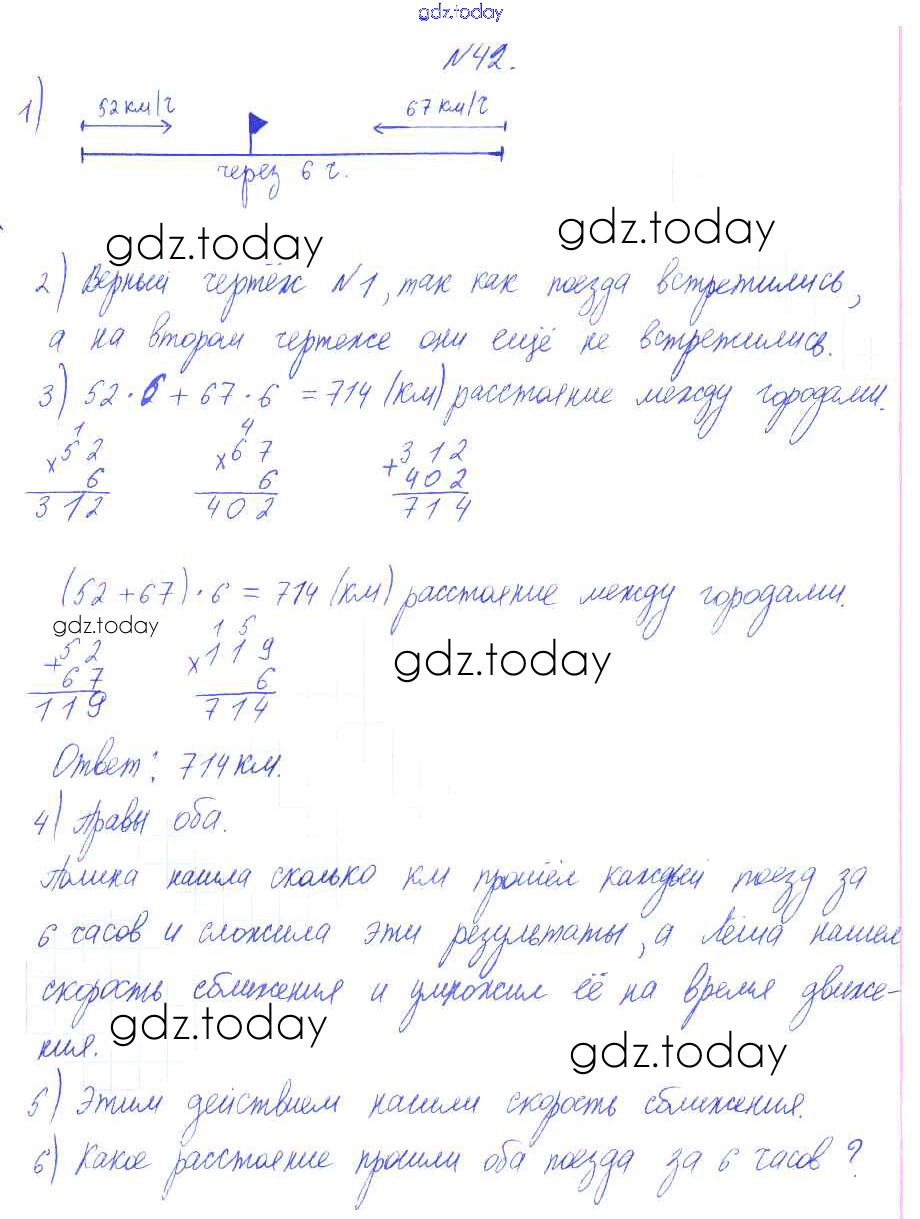 gdz.today
№42.
1) 52 км/ч 67 км/ч
через 6 ч.
gdz.today gdz.today
2) Верный чертёж №1, так как поезда встретились,
а на втором чертеже они ещё не встретились.
3) 52 · 6 + 67 · 6 = 714 (км) расстояние между городами.
1 4
×52 ×67 +312
6 6 402
312 402 714
(52 + 67) · 6 = 714 (км) расстояние между городами.
gdz.today 1 5
+52 ×119 gdz.today
67 6
119 714
Ответ: 714 км.
4) Правы оба.
Полина нашла сколько км прошёл каждый поезд за
6 часов и сложила эти результаты, а Лёша нашел
скорость сближения и умножил её на время движе-
ния.
gdz.today gdz.today
5) Этим действием нашли скорость сближения.
6) Какое расстояние прошли оба поезда за 6 часов?